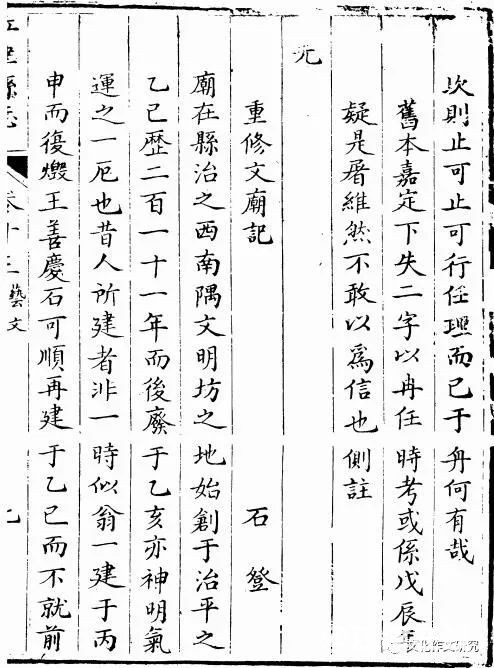 次則止可止可行任理而已于冉何有哉
舊本嘉定下失二字以冉任時考或係戊辰年
疑是屠維然不敢以爲信也側註
元
重修文廟記 石登
廟在縣治之西南隅文明坊之地始創于治平之
乙巳歷二百一十一年而後廢于乙亥亦神明氣
運之一厄也昔人所建者非一時似翁一建于丙
申而復燬王善慶石可順再建于乙巳而不就前
縣志 藝文
作文研究